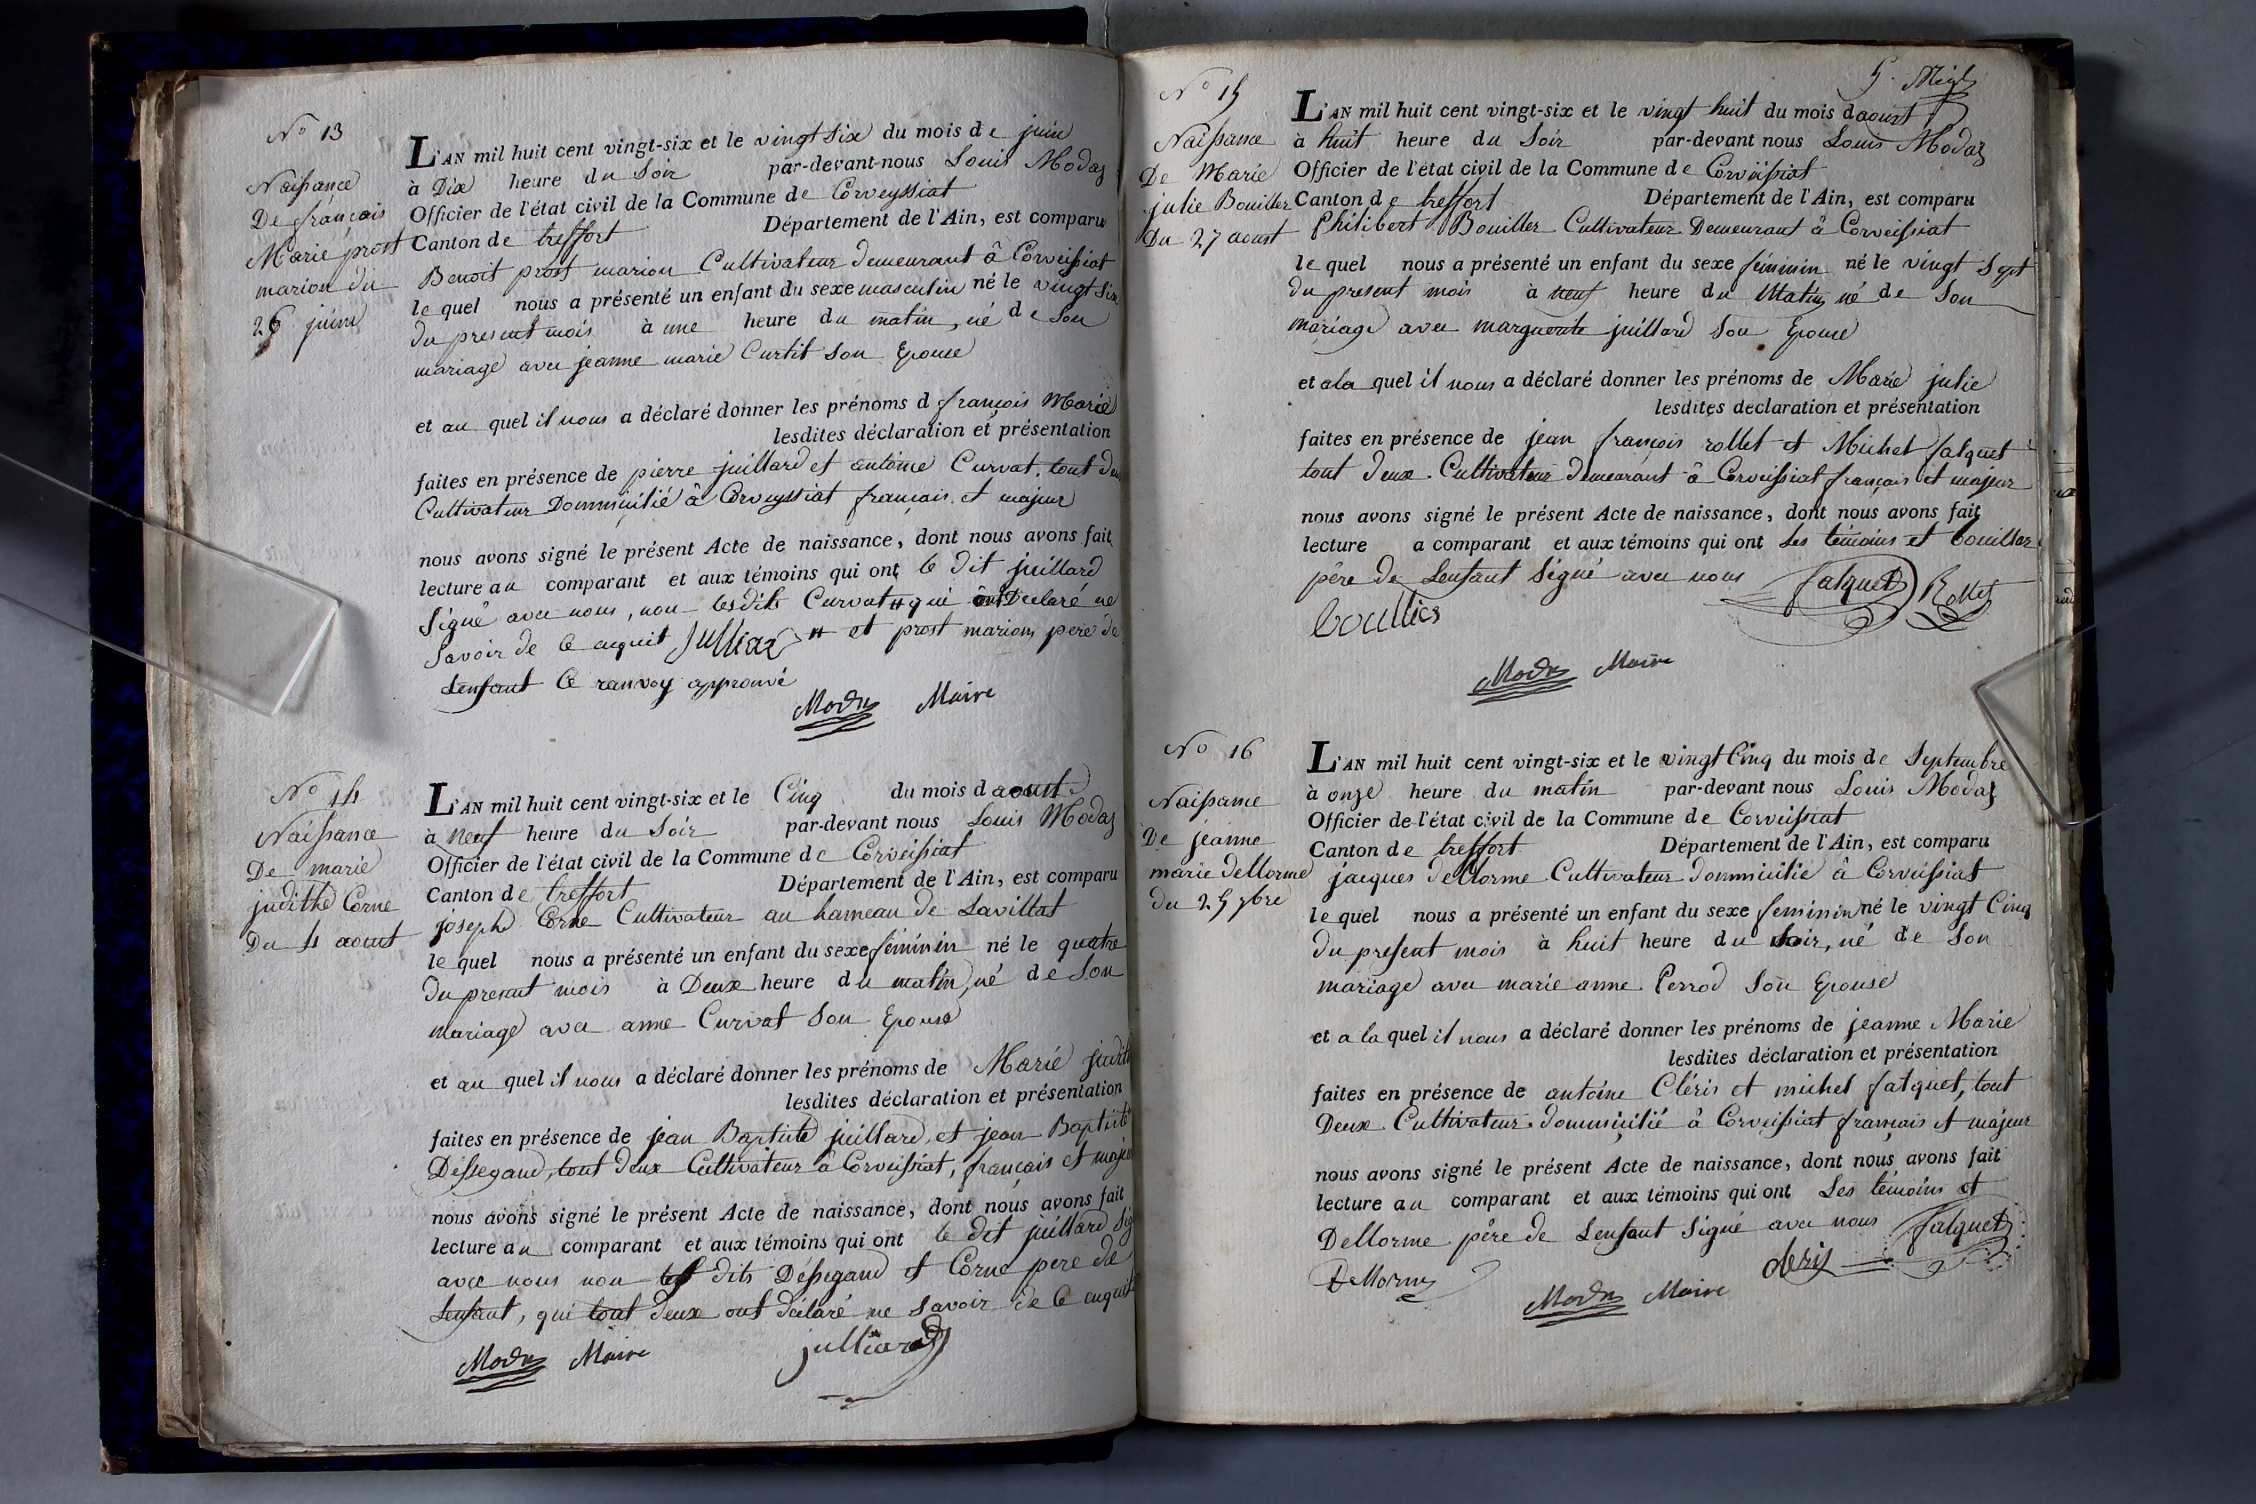 No 13
Naissance
De françois
Marie prost
marion du
26 juin
L'AN mil huit cent vingt-six et le vingt six du mois de juin
à Dix heure du Soir par-devant-nous Louis Modas
Officier de l'état civil de la Commune de Corveyssiat
Canton de treffort Département de l'Ain, est comparu
Benoit prost marion Cultivateur demeurant â Corveissiat
le quel nous a présenté un enfant du sexe masculin né le vingt six
du present mois à une heure du matin, né de Son
mariage avec jeanne marie Curtit son Epouse
et au quel il nous a déclaré donner les prénoms d françois Marie
lesdites déclaration et présentation
faites en présence de pierre juillard et antoine Curvat, tout deux
Cultivateur Dommicilié â Corveyssiat français et majeur
nous avons signé le présent Acte de naissance, dont nous avons fait
lecture au comparant et aux témoins qui ont le dit juillard
Signé avec nous, non lesdits Curvat # qui ont Declaré ne
Savoir de ce enquit Julliar # et prost marion pere de
Lenfant Ce ranvoy approuvé
Modas Maire
No 14
Naissance
De marie
judithe Corne
Du 4 aoust
L'AN mil huit cent vingt-six et le Cinq du mois d aoust
à neuf heure du Soir par-devant nous Louis Modas
Officier de l'état civil de la Commune de Corveissiat
Canton de treffort Département de l'Ain, est comparu
joseph Corne Cultivateur au hameau de Lavillat
le quel nous a présenté un enfant du sexe féminin né le quatre
du present mois à Deux heure du matin, né de Son
mariage avec anne Curvat Son Epouse
et au quel il nous a déclaré donner les prénoms de Marie judith
lesdites déclaration et présentation
faites en présence de jean Baptiste juillard, et jean Baptiste
Dèssegaud, tout deux Cultivateur â Corveissiat, français et majeur
nous avons signé le présent Acte de naissance, dont nous avons fait
lecture au comparant et aux témoins qui ont le dit juillard Sig
avec nous non les dits Dèssegaud et Corne pere de
Lenfant, qui tout deux ont déclaré ne Savoir de ce enquit
Modas Maire julliard
5. 
No 15
Naissance
De Marie
julie Bouiller
Du 27 aoust
L'AN mil huit cent vingt-six et le vingt huit du mois d aoust
à huit heure du Soir par-devant nous Louis Modas
Officier de l'état civil de la Commune de Corveissiat
Canton de treffort Département de l'Ain, est comparu
Philibert Bouiller Cultivateur Demeurant â Corveissiat
le quel nous a présenté un enfant du sexe féminin né le vingt Sept
du present mois à neuf heure du Matin, né de Son
mariage avec marguerite juillard Son Epouse
et a la quel il nous a déclaré donner les prénoms de Marie julie
lesdites declaration et présentation
faites en présence de jean françois rollet et Michel falquet
tout deux Cultivateur demeurant â Corveissiat français et majeur
nous avons signé le présent Acte de naissance, dont nous avons fait
lecture a comparant et aux témoins qui ont Les témoins et bouiller
pêre de Lenfant Signé avec nous falquet Rollet
boullier
Modas Maire
No 16
Naissance
De jeanne
marie dellorme
du 25 7bre
L'AN mil huit cent vingt-six et le vingt Cinq du mois de Septembre
à onze heure du matin par-devant nous Louis Modas
Officier de l'état civil de la Commune de Corveissiat
Canton de treffort Département de l'Ain, est comparu
jacques dellorme Cultivateur dommicilié â Corveissiat
le quel nous a présenté un enfant du sexe feminin né le vingt Cinq
du present mois à huit heure du soir, né de Son
mariage avec marie anne Perrod Son Epouse
et a la quel il nous a déclaré donner les prénoms de jeanne Marie
lesdites déclaration et présentation
faites en présence de antoine Cléris et michel falquet, tout
Deux Cultivateur dommicilié â Corveissiat français et majeur
nous avons signé le présent Acte de naissance, dont nous avons fait
lecture au comparant et aux témoins qui ont Les témoins et
Dellorme pêre de Lenfant Signé avec nous falquet
Delorme cleris
Modas Maire